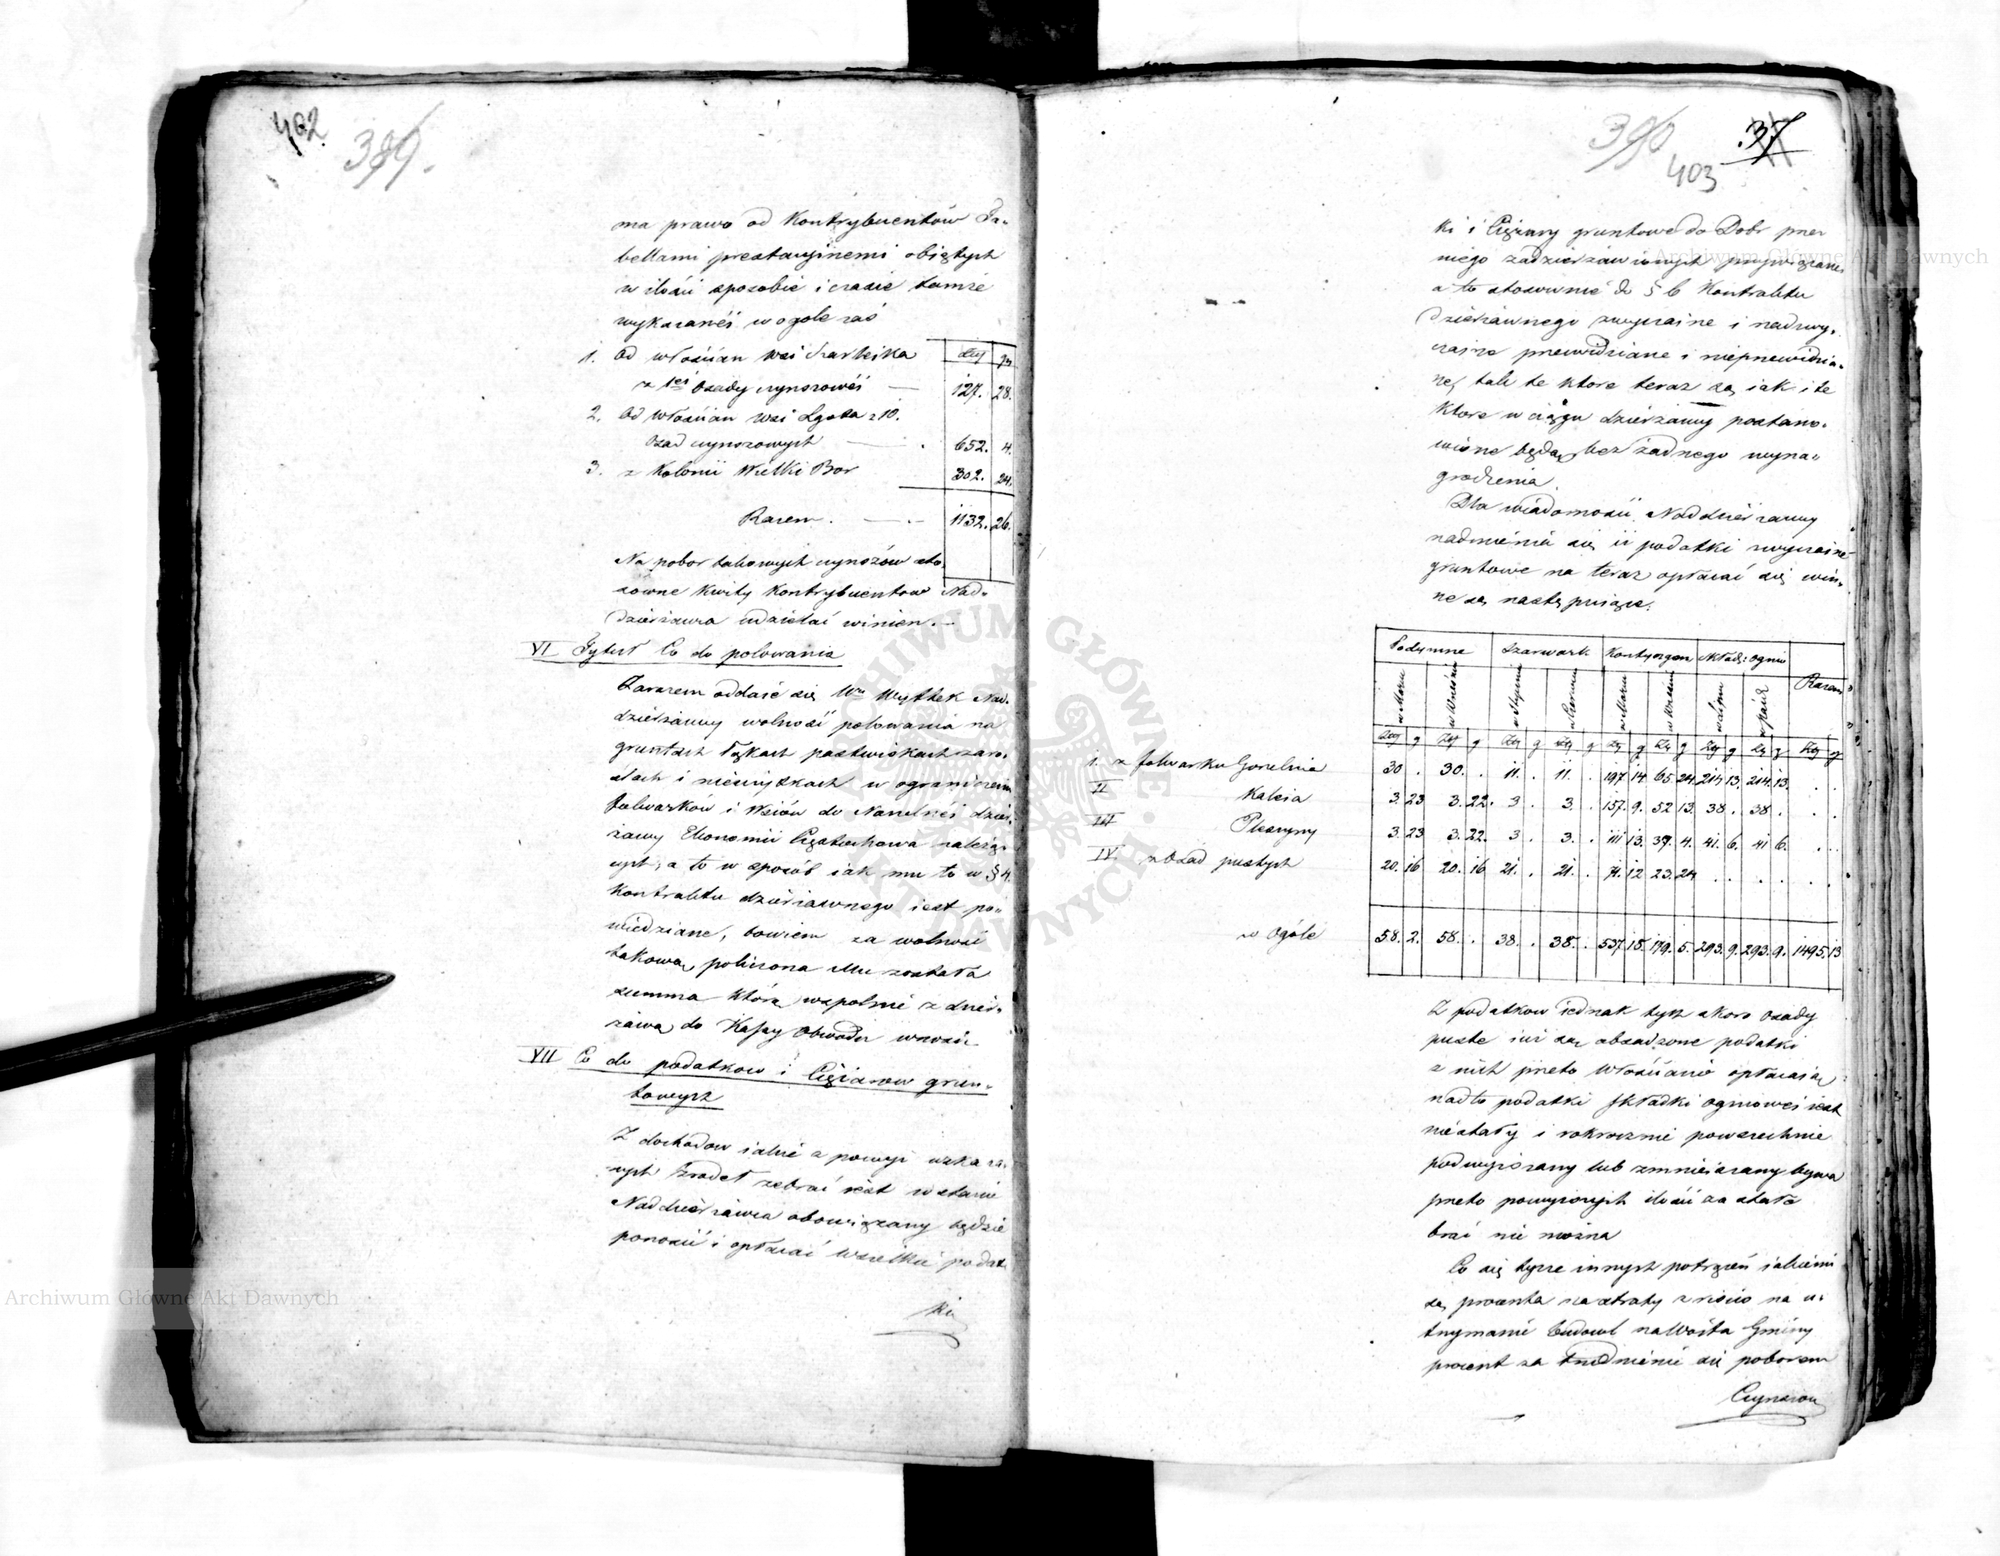 402
389.
ma prawo od Kontrybuentów Ta-
bellami prestacyinemi obiętych
w ilości sposobie i czasie tamże
wykazaneÿ w ogóle zaś
Złp gr
1. Od włościan wsi Szarleika
z 1eÿ Osady czynszoweÿ — 127. 28.
2. Od Włościan wsi Lgota z 10.
Osad czynszowych — . 652. 4.
3. z Kolonii Wielki Bor 302. 24.
Razem . — . — . 1132. 26.
Na pobor takowych czynszów sto-
sowne Kwity Kontrybuentow Nad-
dzierżawca udzielać winien. —
VI Tytuł Co do polowania
Zarazem oddaie się Wu Nad-
dzierżawcy wolność polowania na
gruntach łąkach pastwiskach zaro-
ślach i nieużytkach w ograniczeniu
folwarków i Wsiów do Naczelneÿ dzier-
żawy Ekonomii Częstochowa należą-
cych, a to w sposób iak mu to w § 4.
Kontraktu dzierżawnego iest po-
wiedziane, bowiem za wolność
takową policzona Mu została
summa którą wspolnie z dzier-
żawą do Kassy Obwodu wnosić.
VII Co do podatkow i Ciężarow grun-
towych
Z dochodow iakie z powyż wskaza-
nych Zrodeł zebrać iest w stanie
Naddzierżawca obowiązany będzie
ponosić i opłacać wszelkie podat
ki
390
37
403
ki i Ciężary gruntowe do Dobr przez
niego zadzierżawionych przywiązane
a to stosownie do § 6 Kontraktu
dzierżawnego zwyczaine i nadzwy-
czaine przewidziane i nieprzewidzia-
ne, tak te ktore teraz są iak i te
Ktore w ciągu dzierżawy postano-
wione będą bez żadnego wyna-
grodzenia.
Dla wiadomości Naddzierżawcy
nadmienia się iż podatki zwyczaine
gruntowe na teraz opłacać się win-
ne są następuiące.
Podymne Szarwark Kontyngen Składs: ogniow Razem
w Marcu w Wrześniu w Styczniu w Czerwcu w Marcu w Wrześniu w Lipcu w paźdz
Złp g Złp g Złp g Złp g Złp g Złp g Złp g Złp g Złp g
1. z folwarku Gorzelnia 30 . 30. . 11. . 11. . 197 14. 65 24. 214 13. 214. 13. . .
II Kaleia 3. 23 3. 22. 3 . 3. . 157. 9. 52 13. 38 . 38 . . .
III 3. 23 3. 22. 3 . 3. . 111 13. 37. 4. 41. 6. 41 6. . .
IV. z Osad pustych 20. 16 20. 16 21. . 21. . 71. 12 23. 24 . . . . . .
w Ogóle 58. 2. 58. . 38. . 38. . 537. 18. 179. 5. 293. 9. 293. 9. 1495. 13
Z podatkow iednak tych skoro osady
puste iuż są obsadzone podatki
z nich przeto Włościanie opłacaią
nadto podatki składki ogniowej iest
niestały i rokrocznie powszechnie
podwyższany lub zmnieiszany bywa
przeto powyższych ilości za stałe
brać nie można
Co się tycze innych potrąceń iakiemi
są procenta na straty z risico na u-
trzymanie budowl na Wóyta Gminy
procent za trudnienie się poborem
Czynszow
Archiwum Główne Akt Dawnych
Archiwum Główne Akt Dawnych
ARCHIWUM GŁÓWNE AKT DAWNYCH